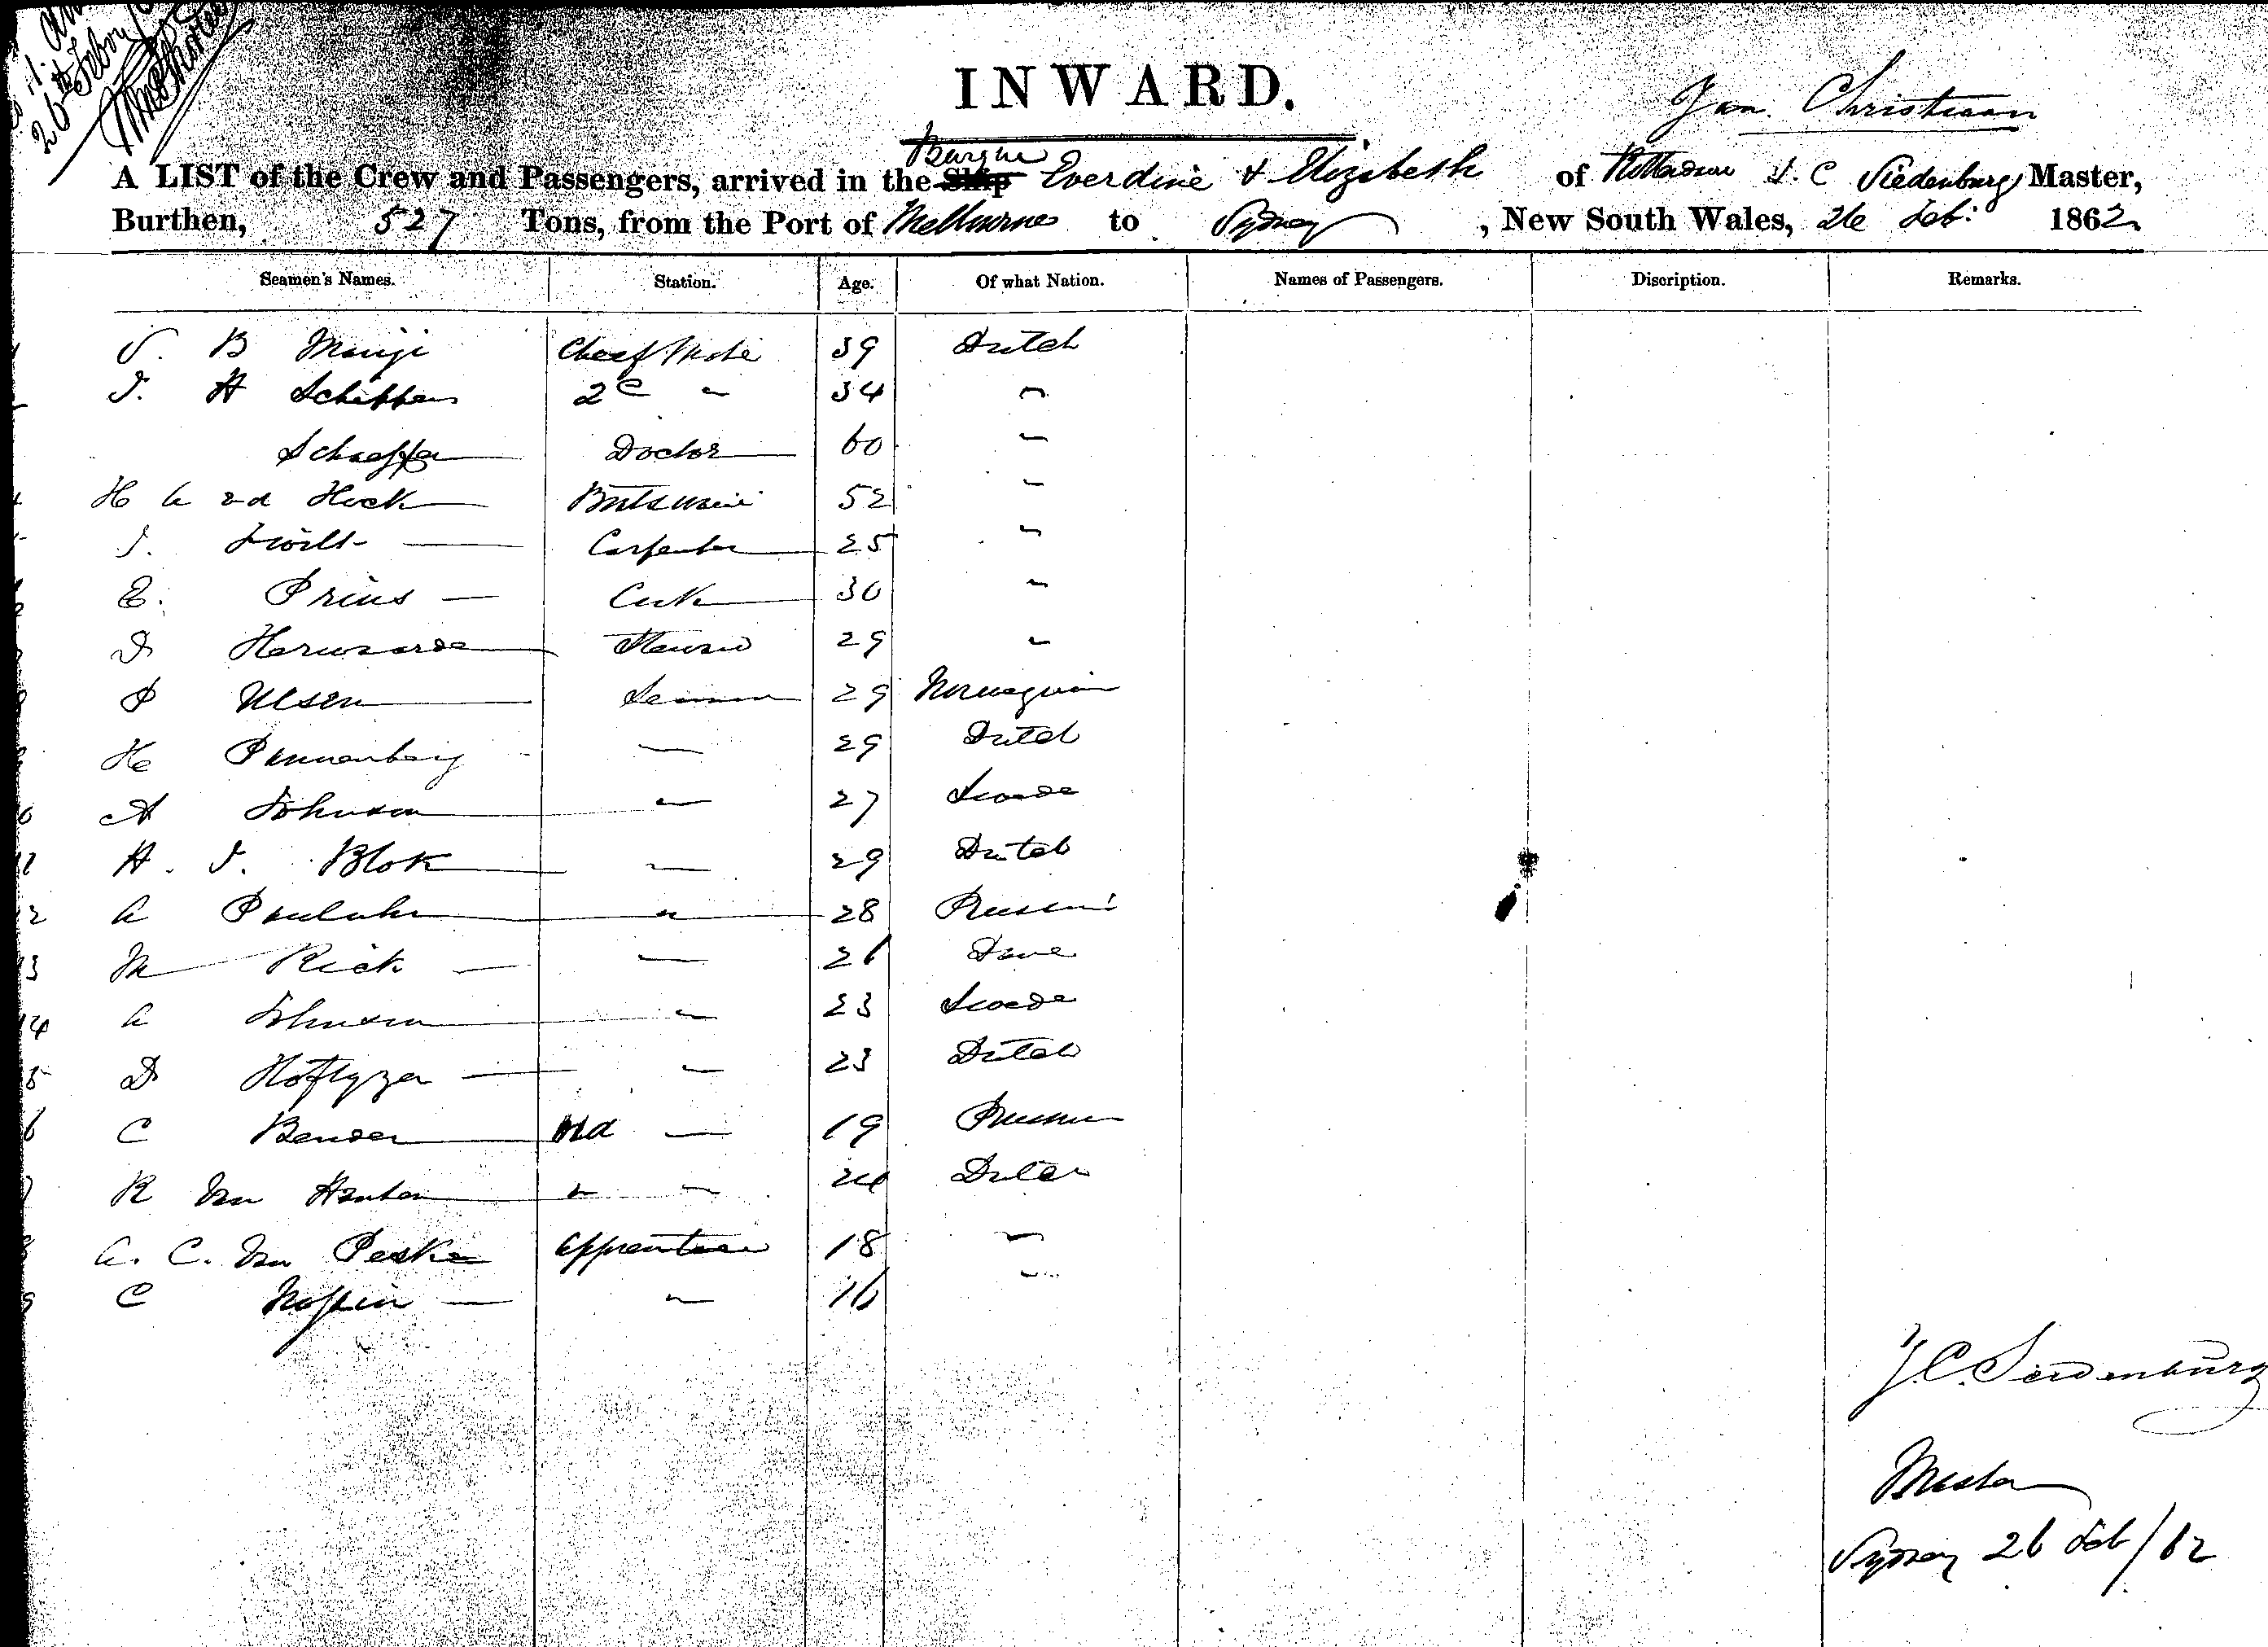 26th Febry
INWARD.
Jan. Christiaan
Barque
A LIST of the Crew and Passengers, arrived in the Ship Everdine & Elizabeth of Rotterdam J. C Siedenburg Master,
Burthen, 527 Tons, from the Port of Melbourne to Sydney, New South Wales, 26 Feb: 1862
Seamen's Names. Station. Age. Of what Nation. Names of Passengers. Discription. Remarks.
B Cheef Mate 39 Dutch
J. H Schippers 2e " 34 "
Schaeffer Doctor 60 "
Hoek 52 "
J. Carpenter 25 "
E. Prins Cook 30 "
29 "
P Olsen Seaman 29 Norwegian
He 29 Dutch
10 A Johnson " 27 Swede
H. J. Blok " 29 Dutch
12 A " 28
13 M Rick " 26 Dane
14 A Johnson " 23 Swede
D Hoftyzer " 23 Dutch
C Bender Old " 19
R Van " " 24 Dutch
A. C. Van Peske Apprentice 18 "
C " 16 "
J. C. Siedenburg
Master
Sydney 26 Feb/62